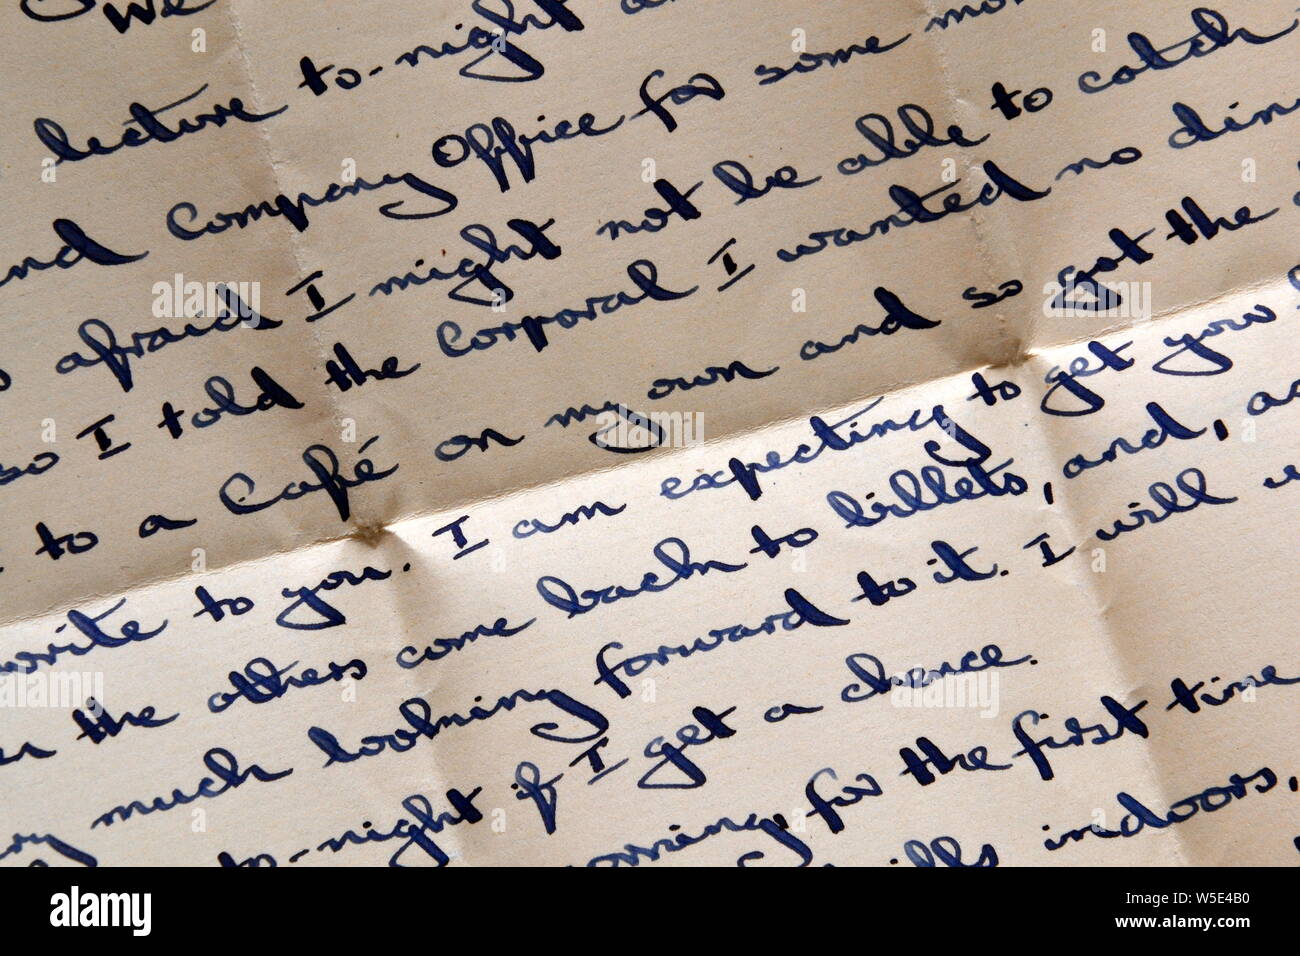 We
lecture to-night
and Company Office for some
afraid I might not be able to catch
so I told the Corporal I wanted no
to a Café on my own and so got the
write to you. I am expecting to get you
the others come back to billets, and,
much looking forward to it. I will
to-night if I get a chance.
for the first time
indoors,
alamy
Image ID: W5E4B0
www.alamy.com